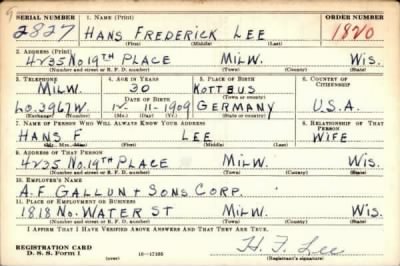 SERIAL NUMBER 1. NAME (Print) ORDER NUMBER
2827 HANS FREDERICK LEE 1820
(First) (Middle) (Last)
2. ADDRESS (Print)
4235 No. 19TH PLACE MILW. WIS.
(Number and street or R. F. D. number) (Town) (County) (State)
3. TELEPHONE 4. AGE IN YEARS 5. PLACE OF BIRTH 6. COUNTRY OF CITIZENSHIP
MILW. 30 KOTTBUS
DATE OF BIRTH (Town or county)
LO. 3967W. 12 11-1909 GERMANY U.S.A.
(Exchange) (Number) (Mo.) (Day) (Yr.) (State or country)
7. NAME OF PERSON WHO WILL ALWAYS KNOW YOUR ADDRESS 8. RELATIONSHIP OF THAT PERSON
HANS F. LEE WIFE
(Mr., Mrs., Miss) (First) (Middle) (Last)
9. ADDRESS OF THAT PERSON
4235 No. 19TH PLACE MILW. WIS.
(Number and street or R. F. D. number) (Town) (County) (State)
10. EMPLOYER'S NAME
A. F. GALLUN + SONS CORP.
11. PLACE OF EMPLOYMENT OR BUSINESS
1818 No. WATER ST MILW. WIS.
(Number and street or R. F. D. number) (Town) (County) (State)
I AFFIRM THAT I HAVE VERIFIED ABOVE ANSWERS AND THAT THEY ARE TRUE.
REGISTRATION CARD H. F. Lee
D. S. S. Form 1 (over) (Registrant's signature)